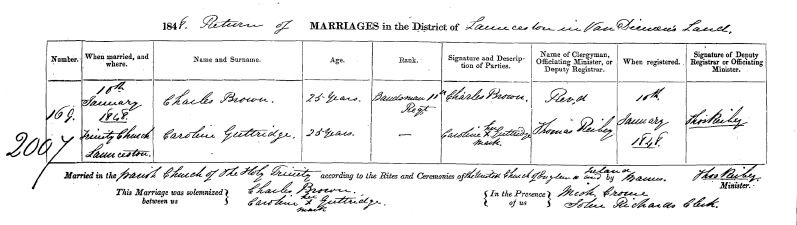 1848. Return of MARRIAGES in the District of Launceston in Van Diemen's Land.
Number. When married, and where. Name and Surname. Age. Rank. Signature and Description of Parties. Name of Clergyman, Officiating Minister, or Deputy Registrar. When registered. Signature of Deputy Registrar or Officiating Minister.
169. 10th January 1848 Trinity Church Launceston. Charles Brown. 25 Years. Bandsman 11th Regt Charles Brown. Revd Thomas Reibey 10th January 1848. Thos Reibey
2007 Caroline Guttridge. 25 Years. — Caroline her X mark Guttridge
Married in the Parish Church of The Holy Trinity according to the Rites and Ceremonies of the United Church of England and Ireland by Banns. Thos Reibey
Minister.
This Marriage was solemnized between us } Charles Brown. Caroline her X mark Guttridge In the Presence of us { John Richards Clerk.